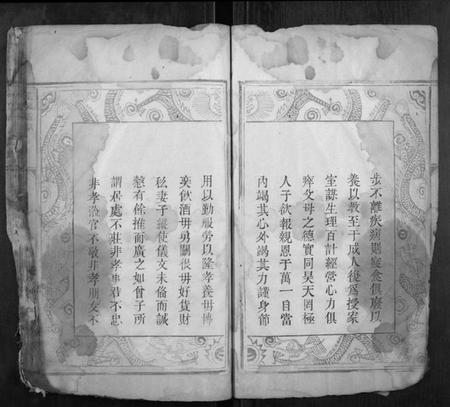 步不離疾痛則寢食俱廢以
養以教至于成人復為授家
室謀生理百計經營心力俱
瘁父母之德實同昊天罔極
人子欲報親恩于萬一自當
內竭其心外竭其力謹身節
用以勤服勞以隆孝養毋博
奕飲酒毋好勇鬪很毋好貨財
私妻子縱使儀文未備而誠
慤有餘推而廣之如曾子所
謂居處不莊非孝事君不忠
非孝涖官不敬非孝朋友不